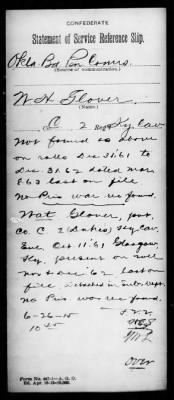 CONFEDERATE
Statement of Service Reference Slip.
Okla. Bd. Pen. Comrs.
(Source of communication.)
W. H. Glover
(Name.)
C, 2 Reg't Ky. Cav.
Not found as above
on rolls Dec 31/61 to
Dec 31/62 dated Mar
8/63 last on file.
No Pris. war rec. found.
Wat. Glover, pvt.
Co. C. 2 (Dukes) Ky. Cav.
Enl. Oct 11/61 Glasgow,
Ky. present on roll
Nov & Dec '62 last on
file.
No Pris. war rec. found.
6-26-15
10 45
over
Form No. 447-1—A. G. O.